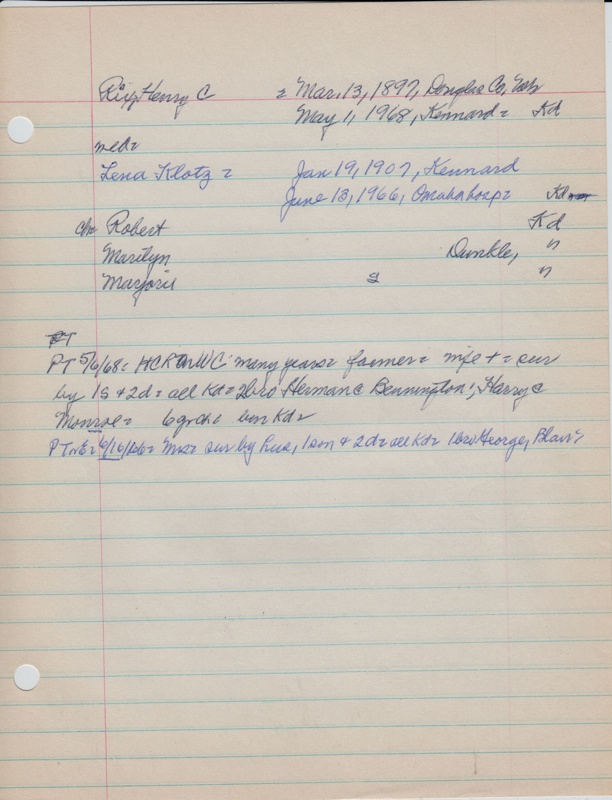 Rix, Henry C = Mar. 13, 1897, Douglas Co, Neb
May 1, 1968, Kennard = Kd
med=
Lena Klotz = Jan 19, 1907, Kennard
June 13, 1966, Omaha hosp= Kd
ch= Robert Kd
Marilyn Dunkle, "
Marjorie s "
PT
PT 5/6/68= HCR in WC many years= farmer= wife += sur
by 1s + 2d= all Kd= 2bro Herman @ Bennington; Harry @
Monroe= 6 grch= bur Kd=
PT=E= 6/16/66= Mrs= sur by hus, 1son + 2d= all Kd= 1bro George, Blair=